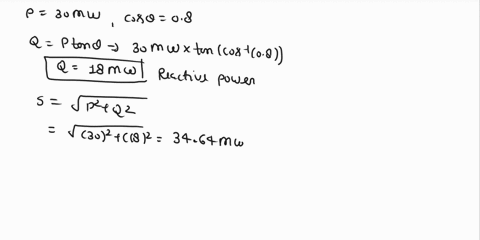 P = 30 MW , cosθ = 0.8
Q = P tanθ → 30 MW × tan (cos⁻¹(0.8))
Q = 18 MW Reactive power
S = √P²+Q²
= √(30)²+(18)² = 34.64 MW